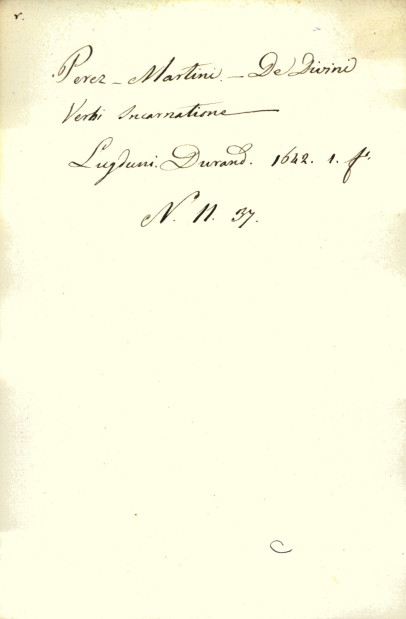 r.
Perez - Martini. - De Divini
Verbi Incarnatione
Lugduni. Durand. 1642. 1. f.
N. 11. 37.
C